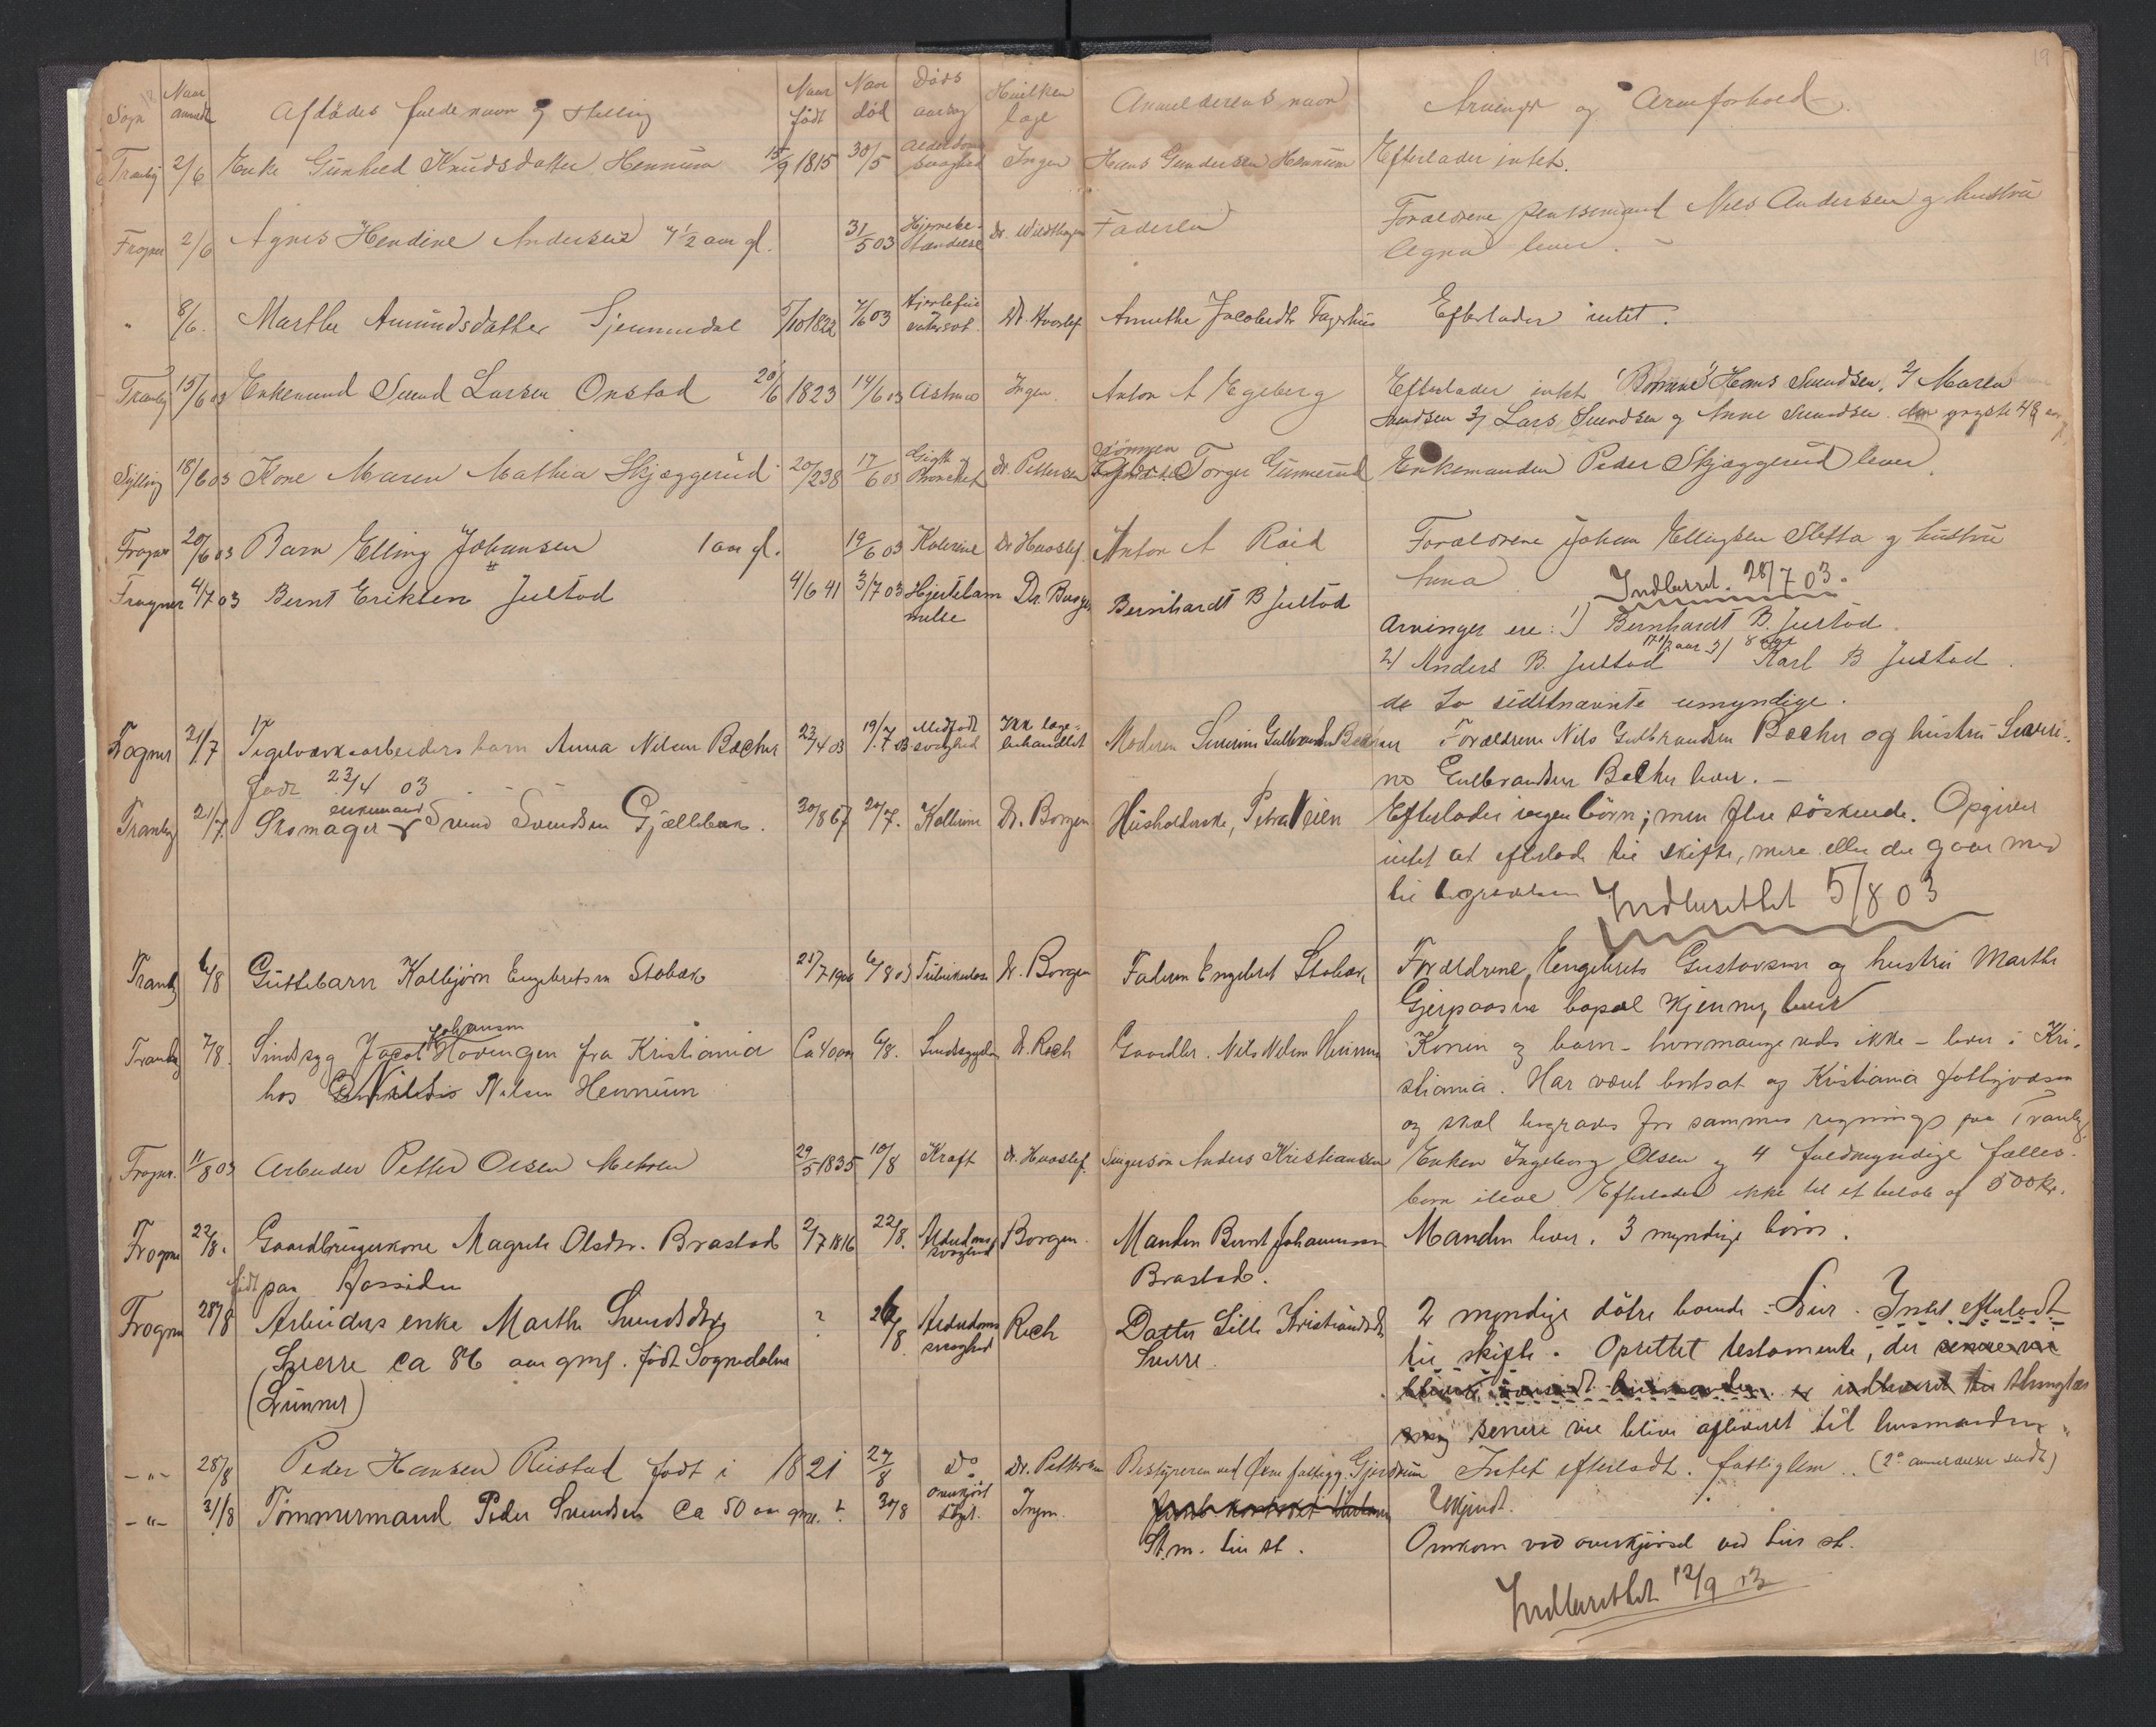 19
Sogn Naar anmeldt Afdødes fulde navn og stilling Naar født Naar død Døds aarsag Hvilken læge Anmelderens navn Arvinger og Arveforhold.
Tranby 2/6 Enke Gunhild Knudsdatter Hennum 15/9 1815 30/5 Alderdoms svaghed Ingen Hans Gundersen Hennum Efterlader intet.
Frogner 2/6 Agnes Hendine Andersen 7 1/2 aar gl. 31/5 03 Hjernebe- tændelse Dr. Wildthagen Faderen Forældrene Nils Andersen og hustru
Agna lever. -
" 8/6. Marthe Amundsdatter 5/10 1822 7/6 03 Dr. Hvoslef Annethe Jacobsdtr Fagerhus Efterlader intet.
Tranby 15/6 03 Enkemand Svend Larsen Onstad 20/6 1823 14/6 03 Astma Ingen. Anton A Egeberg Efterlader intet Børn 1 Hans Svendsen, 2/ Maren
Svendsen 3/ Lars Svendsen og Anne Svendsen den yngste 48 aar
Sylling 18/6 03 Kone Maren Mathea Skjæggerud 20/2 38 17/6 03 Gigt og Bronchit Dr. Pettersen Sønnen Torger Gunnerud Enkemanden Peder Skjæggerud lever.
Frogner 20/6 03 Barn Elling Johansen 1 aar gl. 19/6 03 Kolerine Dr Hvoslef Anton A Røid Forældrene Johan Ellingsen Sletta og hustru
Anna Indberet. 28/7 03.
Frogner 4/7 03 Bernt Eriksen Justad 4/6 41 3/7 03 Hjertelam melse Dr. Borgen Bernhardt B Justad
Arvinger ere: 1) Bernhardt B. Justad.
2/ Anders B. Justad 17 1/2 aar 3/ Karl B Justad 8 aar.
de to sidstnævnte umyndige.
Frogner 21/7 Teglværksarbeiders barn Anna Nilsen Bæcher 23/4 03 19/7 03 Medfødt svaghed Ikke læge- behandlet Moderen Severine Gulbrandsen Forældrene Nils Gulbrandsen Bæcher og hustru Severi-
født 23/4 03 ne Gulbrandsen Bæcher lever. -
Tranby 21/7. Skomager enkemand Svend Svendsen Gjællebæk. 30/8 67 20/7. Kolerine Dr. Borgen Husholderske, Petra Veien Efterlader ingen børn; men flere søskende. Opgiver
intet at efterlade til skifte, mere eller der gaar med
til begravelsen Indberettet 5/8 03
Tranby 6/8 Guttebarn Kolbjørn Engebretsen Stabæk 21/7 1900 6/8 03 Tuberkulose Dr. Borgen Faderen Engebret Stabæk Forældrene, Engebret Gustavsen og hustru Marthe
bopæl Kjenner, lever
Tranby 7/8. Sindssyg Jacob Johansen Hovengen fra Kristiania Ca 40 aar 6/8. Sindssygdom Dr. Rech Gaardbr. Nils Nilsen Hennum Konen og barn - hvormange vides ikke - lever i Kri-
hos Nilsen Hennum stiania. Har været bortsat af Kristiania fattigvæsen
og skal begraves for sammes regning paa Tranby.
Frogner. 11/8 03 Arbeider Petter Olsen Mehren 29/5 1835 10/8 Kræft Dr. Hvoslef. Svigersøn Anders Kristiansen Enken Ingeborg Olsen og 4 fuldmyndige fælles-
børn ilive. Efterlader ikke til et beløb af 500 Kr.
Frogner 22/8. Gaardbrugerkone Magrete Olsdtr. Brastad 2/7 1816 22/8. Alderdoms svaghed Borgen. Manden Bernt Johannessen Manden lever. 3 myndige børn.
født paa Brastad.
Frogner 28/8 Arbeiders enke Marthe Svendsdtr ? 26/8 Alderdoms svaghed Rech Datter Lille Kristiansdtr 2 myndige døtre boende i Lier. Intet efterladt
Sverre ca 86 aar gml. født Sognedalen Sverre. til skifte. Oprettet testamente, der
(Lunner) er
senere vil blive afleveret til lensmanden.
- " - 28/8 Peder Hansen Reistad født i 1821 27/8 Do Dr. Pettersen Bestyreren ved Intet efterladt. fattiglem. (2 anmeldelser sendt)
- " - 31/8 Tømmermand Peder Svendsen Ca 50 aar gml. ? 30/8 overkjørt Ingen. Ukjendt.
St.m. Lier st. Omkom ved overkjørsel ved Lier st.
Indberettet 12/9 13